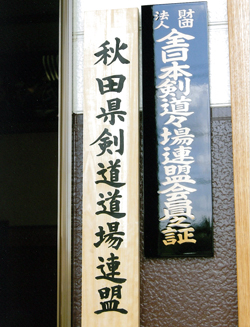 財団
法人
全日本剣道々場連盟会員之証
秋田県剣道道場連盟